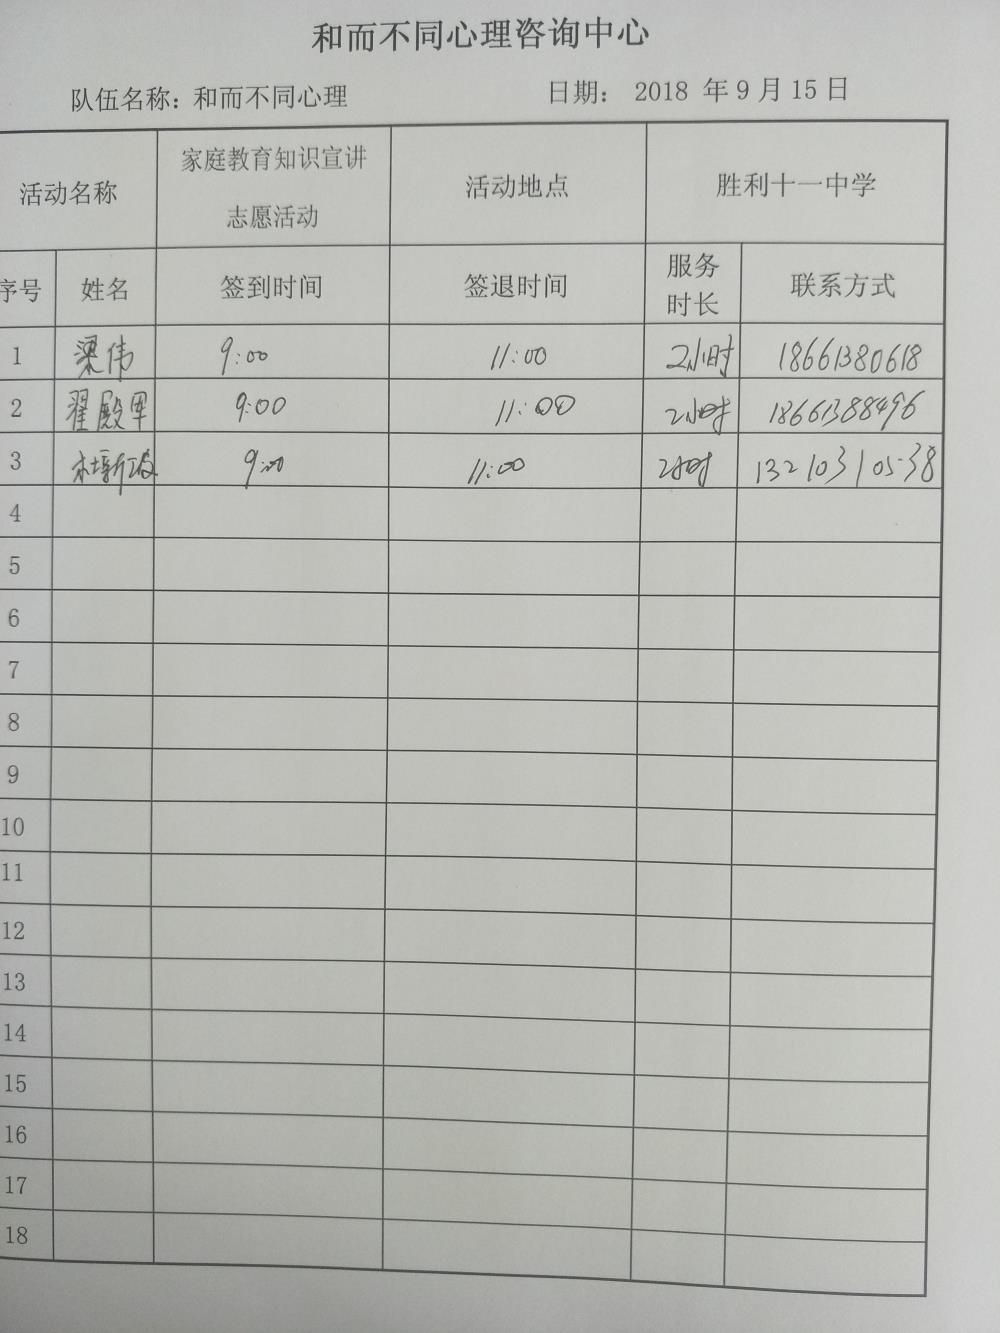 和而不同心理咨询中心
队伍名称：和而不同心理 日期： 2018 年 9 月 15 日
活动名称 家庭教育知识宣讲志愿活动 活动地点 胜利十一中学
序号 姓名 签到时间 签退时间 服务时长 联系方式
1 梁伟 9:00 11:00 2小时 18661380618
2 翟殿军 9:00 11:00 2小时 18661388496
3 9:00 11:00 2小时 13210310538
4
5
6
7
8
9
10
11
12
13
14
15
16
17
18